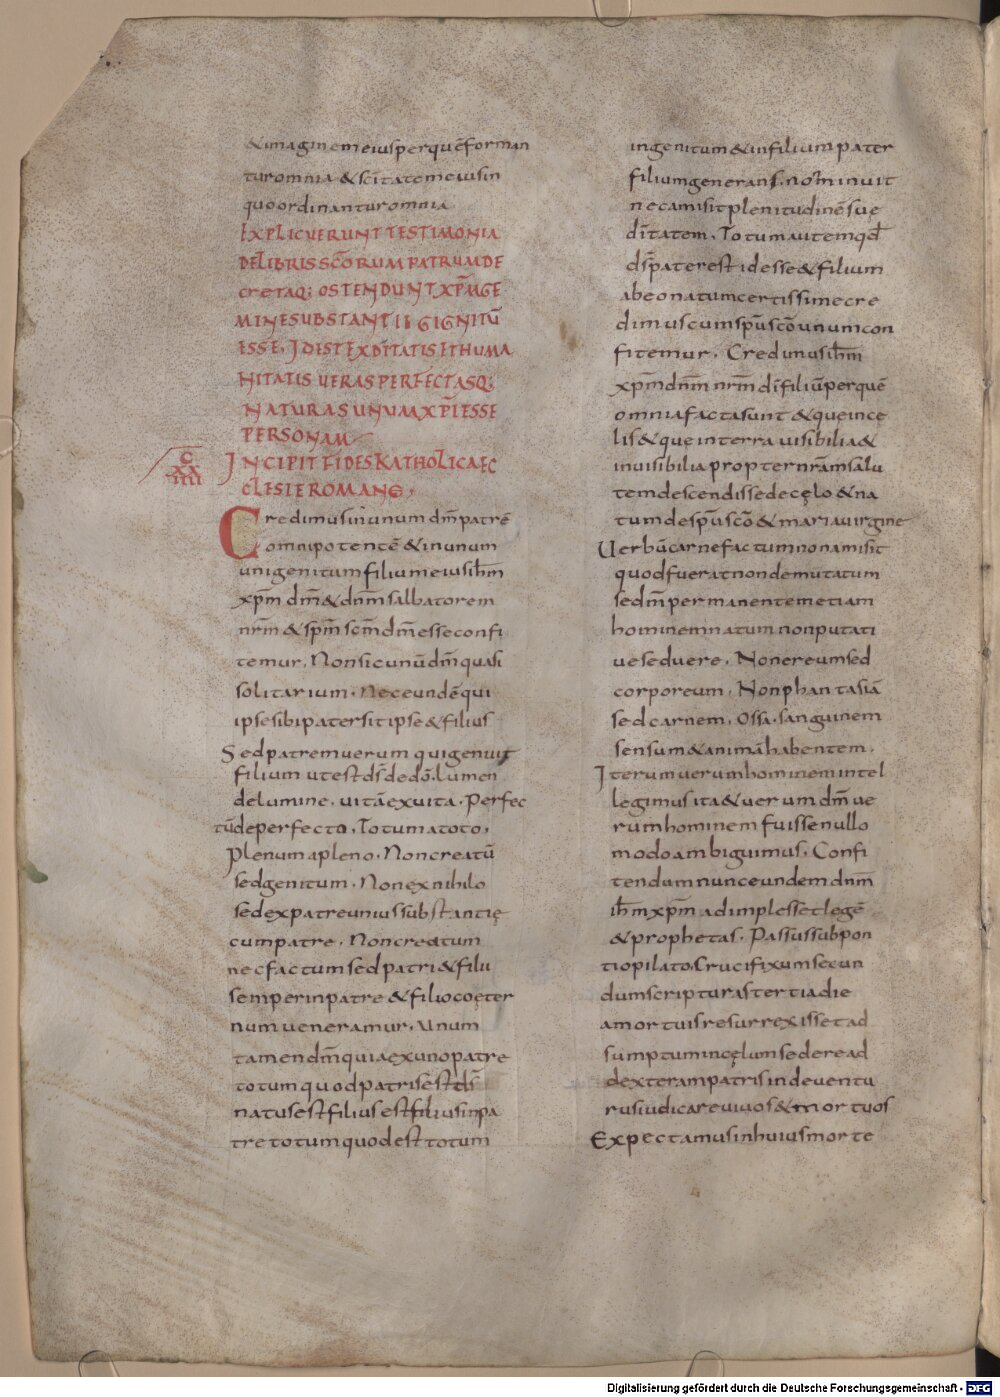 & imaginem eius per quē forman
tur omnia & scītatem eius in
quo ordinantur omnia
EXPLICUERUNT TESTIMONIA
DE LIBRIS SCŌRUM PATRUM DE
CRETAQ; OSTENDUNT XP̄M GE
MINE SUBSTANTIE GIGNITŪ
ESSE, ID EST EX DĪTATIS ET HUMA
NITATIS UERAS PERFECTASQ;
NATURAS UNUM XP̄I ESSE
PERSONAM
C
XX
IIII
INCIPIT FIDES KATHOLICA EC
CLESIE ROMANĘ,
Credimus in unum dm̄ patrē
omnipotentē & in unum
unigenitum filium eius ih̄m
xp̄m dm̄ & dnm̄ salbatorem
nr̄m & sp̄m scm̄ dm̄ esse confi
temur, Non sic unū dm̄ quasi
solitarium. Nec eundē qui
ipse sibi pater sit ipse & filius
Sed patrem uerum qui genuit
filium ut est ds̄ de dō. lumen
de lumine. uitā ex uita. Perfec
tū de perfecto, Totum a toto,
Plenum a pleno. Non creatū
sed genitum. Non ex nihilo
sed ex patre unius substantię
cum patre. Non creatum
nec factum sed patri & filii
semper in patre & filio coęter
num ueneramur. Unum
tamen dm̄ quia ex uno patre
totum quod patris est ds̄
natus est filius est filius in pa
tre totum quod est totum
ingenitum & in filium pater
filium generans. non minuit
nec amisit plenitudinē suę
dītatem. Totum autem qd̄
ds̄ pater est id esse & filium
ab eo natum certissime cre
dimus cum sp̄u scō unum con
fitemur. Credimus ih̄m
xp̄m dnm̄ nr̄m dī filiū per quē
omnia facta sunt & que in cę
lis & que in terra uisibilia &
inuisibilia propter nr̄am salu
tem descendisse de cęlo & na
tum de sp̄u scō & maria uirgine
Uerbū carne factum non amisit
quod fuerat non demutatum
sed m̄ permanentem etiam
hominem natum non putati
ue sed uere. Non ereum sed
corporeum. Non phantasiā
sed carnem. Ossa. sanguinem
sensum & animā habentem.
Iterum uerum hominem intel
legimus ita & uerum dm̄ ue
rum hominem fuisse nullo
modo ambiguimus. Confi
tendum nunc eundem dnm̄
ih̄m xp̄m adimplesset legē
& prophetas. Passus sub pon
tio pilato. Crucifixum secun
dum scripturas tertia die
a mortuis resurrexisset ad
sumptum in cęlum sedere ad
dexteram patris inde uentu
rus iudicare uiuos & mortuos
Expectamus in huius morte
Digitalisierung gefördert durch die Deutsche Forschungsgemeinschaft - DFG